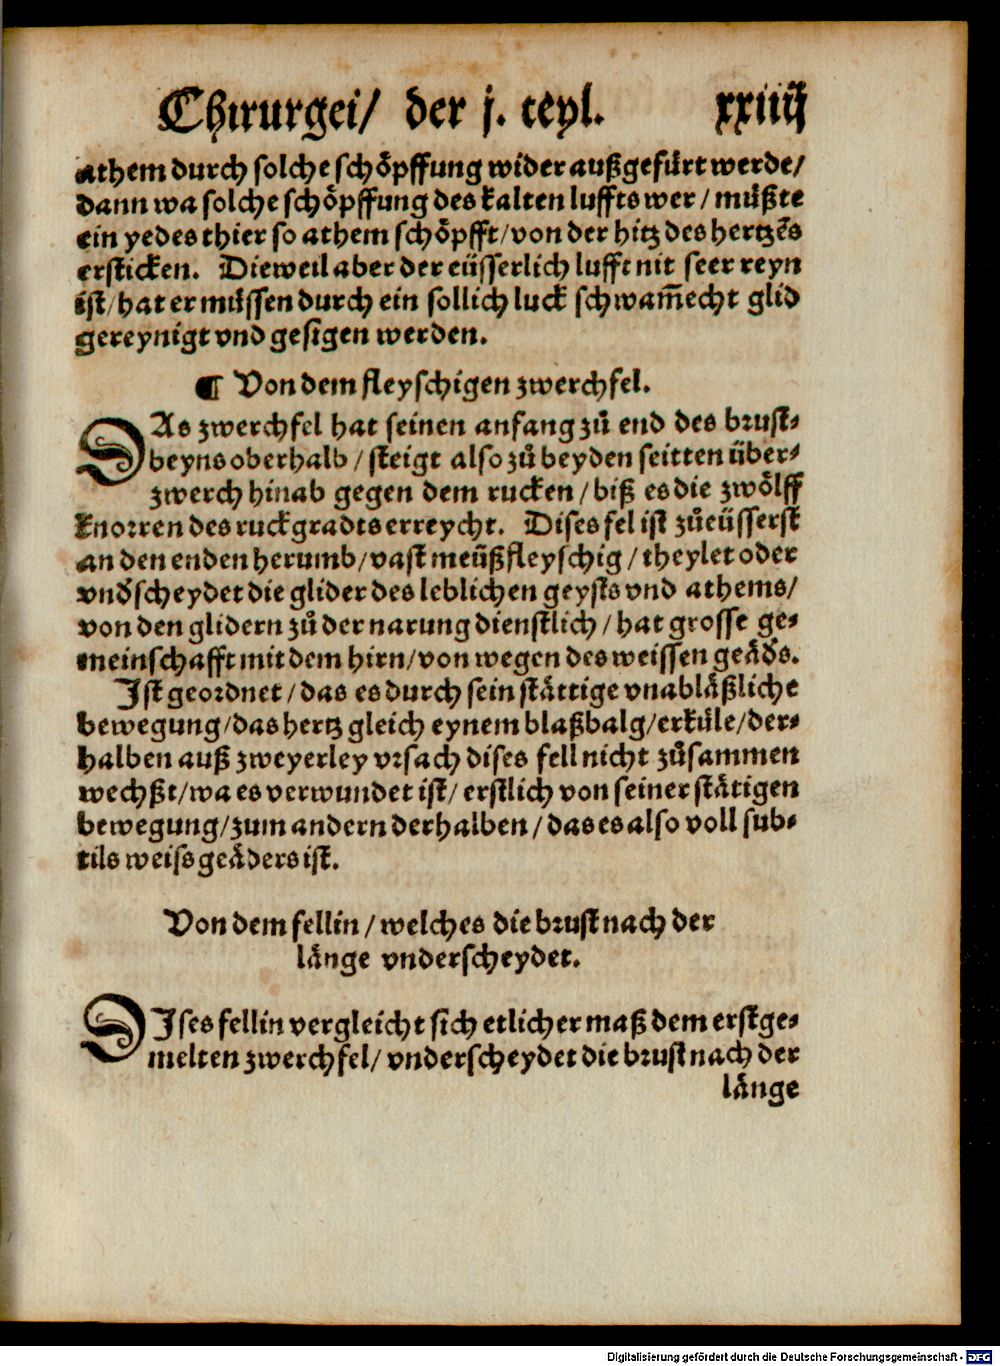 Chirurgei/ der j. teyl. xxiiij
athem durch solche schöpffung wider außgefürt werde/
dann wa solche schöpffung des kalten luffts wer / müßte
ein yedes thier so athem schöpfft/von der hitz des hertzẽs
ersticken. Dieweil aber der eüsserlich lufft nit seer reyn
ist/hat er müssen durch ein sollich luck schwam̃echt glid
gereynigt vnd gesigen werden.
¶ Von dem fleyschigen zwerchfel.
DAs zwerchfel hat seinen anfang zů end des brust-
beyns oberhalb / steigt also zů beyden seitten über-
zwerch hinab gegen dem rucken / biß es die zwölff
knorren des ruckgradts erreycht. Dises fel ist zů eüsserst
an den enden herumb/vast meüßfleyschig / theylet oder
vnd̛scheydet die glider des leblichen geysts vnd athems/
von den glidern zů der narung dienstlich / hat grosse ge-
meinschafft mit dem hirn/von wegen des weissen geäd̛s.
Ist geordnet / das es durch sein stättige vnabläßliche
bewegung/das hertz gleich eynem blaßbalg/erküle/der-
halben auß zweyerley vrsach dises fell nicht zůsammen
wechßt/wa es verwundet ist/ erstlich von seiner stätigen
bewegung/zum andern derhalben / das es also voll sub-
tils weiss geäders ist.
Von dem fellin / welches die brust nach der
länge vnderscheydet.
DIses fellin vergleicht sich etlicher maß dem erstge-
melten zwerchfel/ vnderscheydet die brust nach der
länge
Digitalisierung gefördert durch die Deutsche Forschungsgemeinschaft - DFG